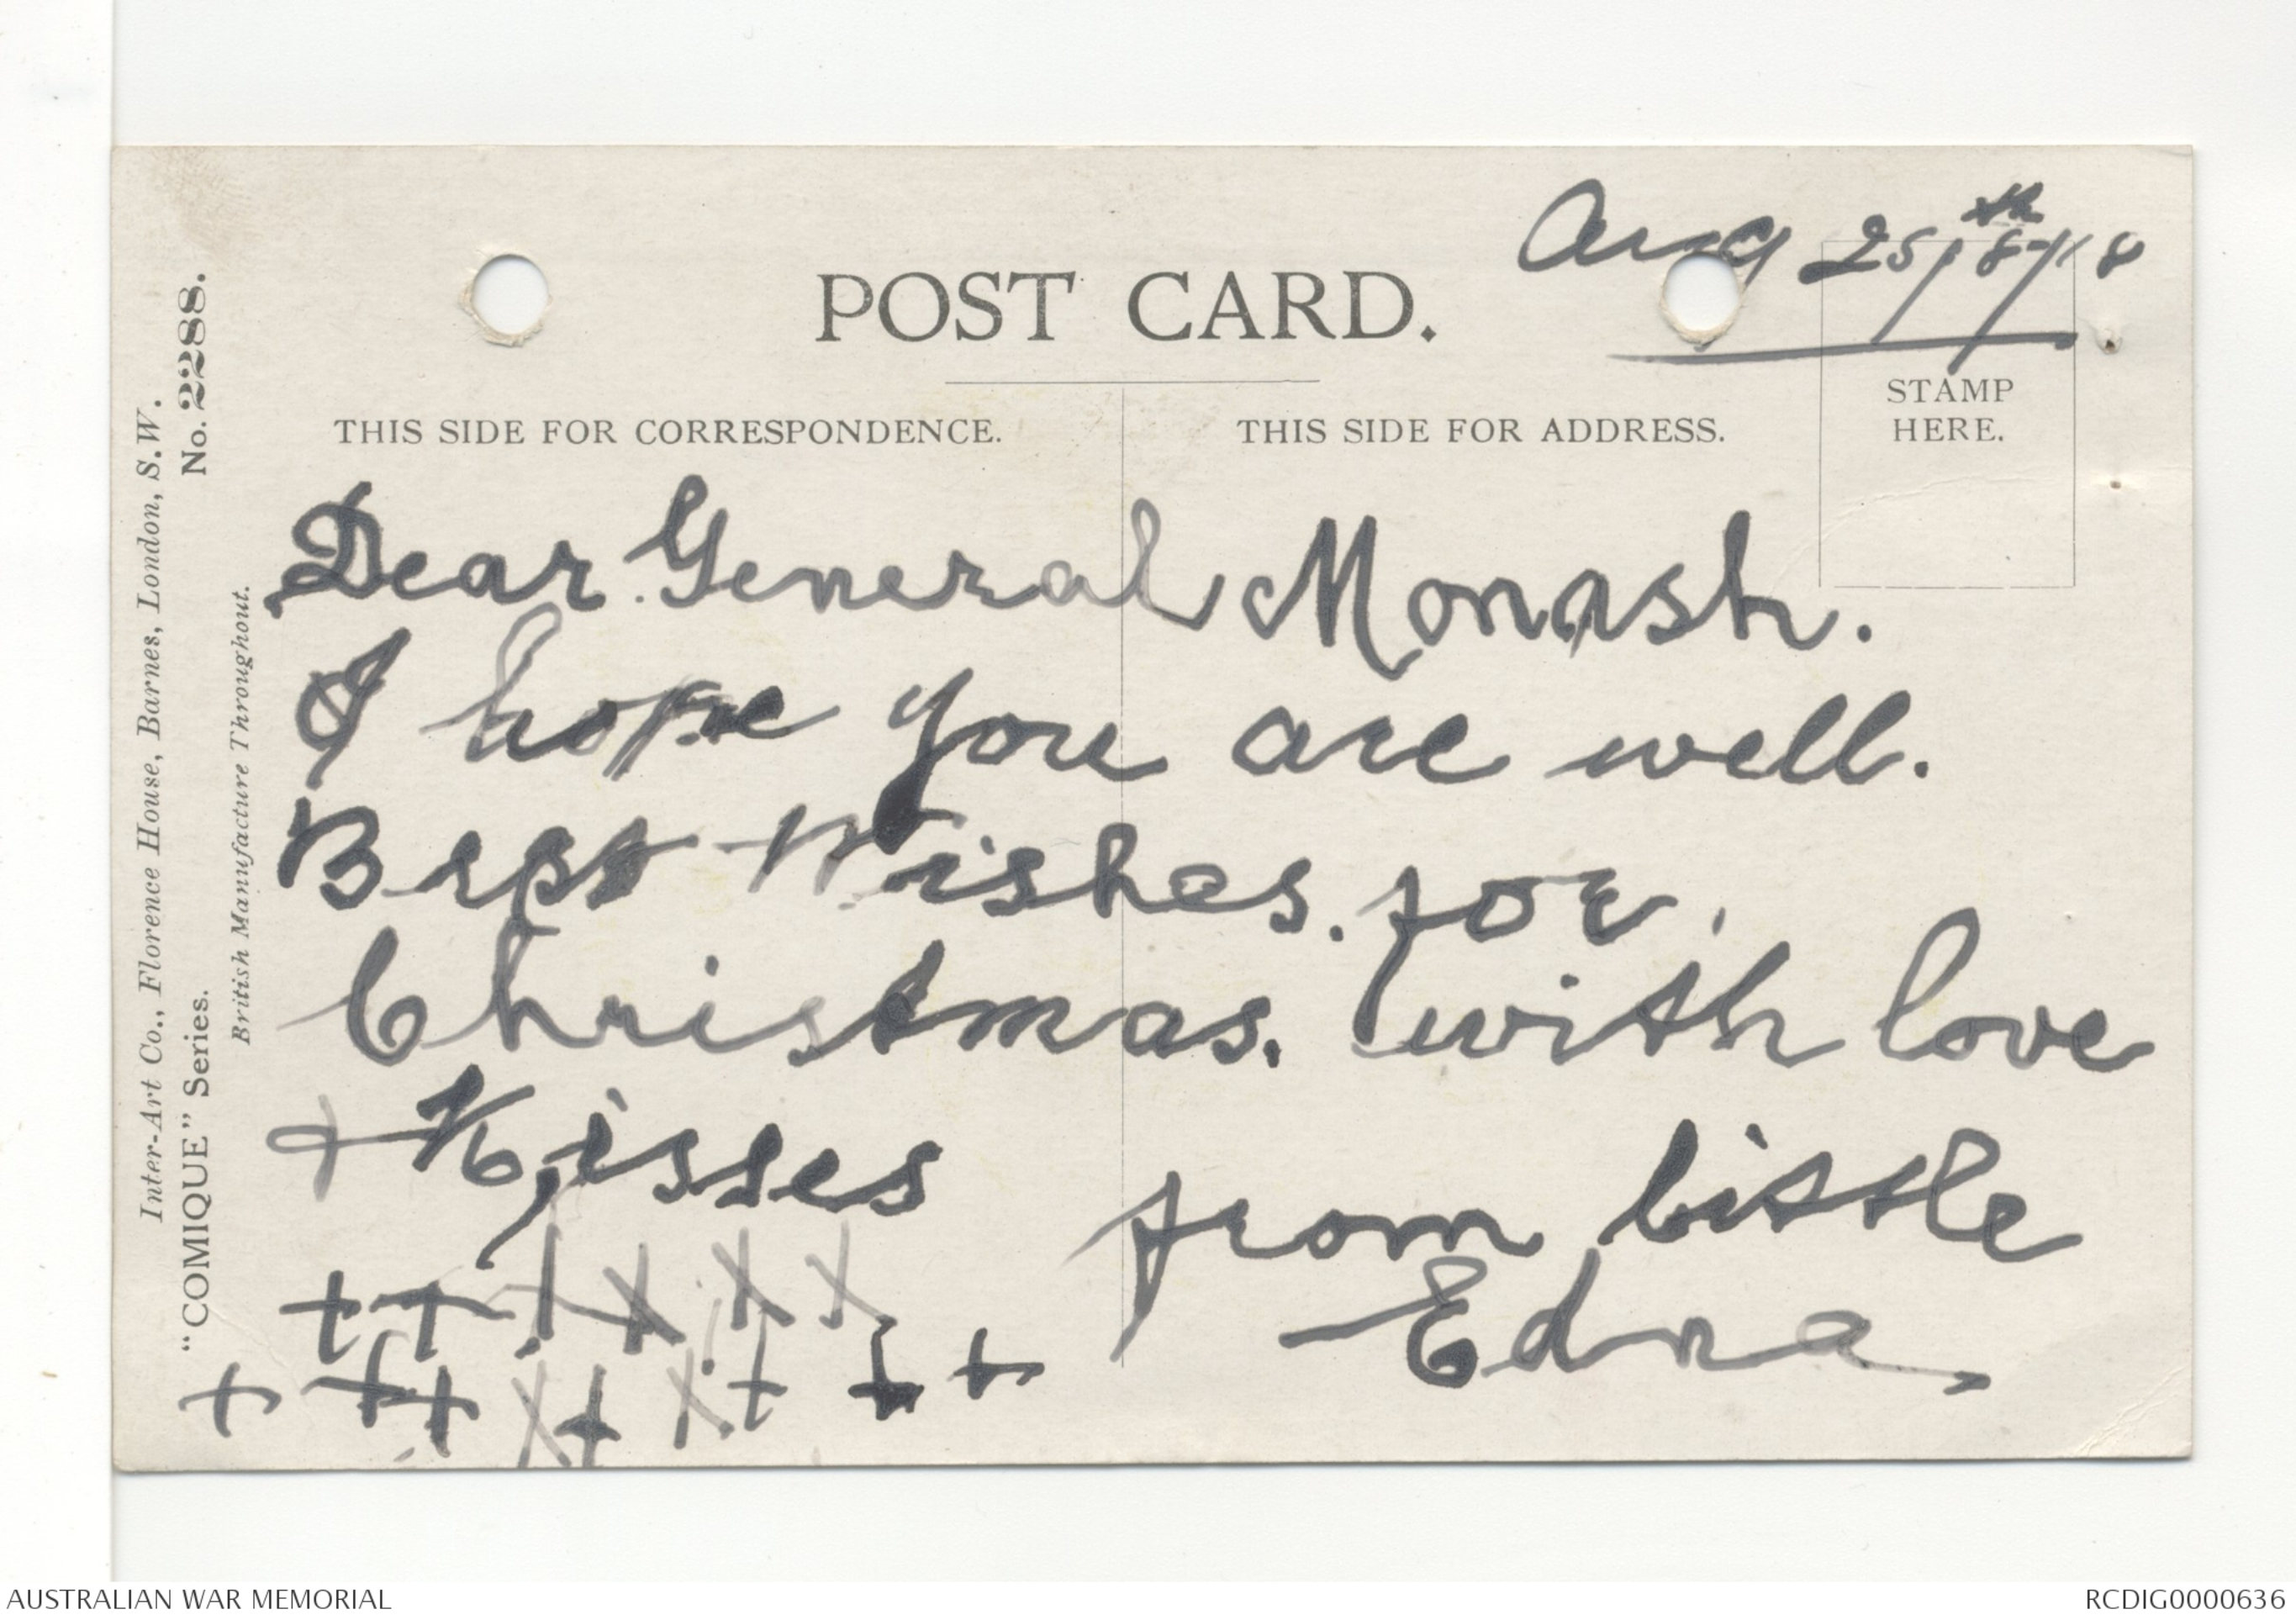 Aug 25th/8/18
POST CARD.
THIS SIDE FOR CORRESPONDENCE.
THIS SIDE FOR ADDRESS.
STAMP
HERE.
Inter-Art Co., Florence House, Barnes, London, S.W.
"COMIQUE" Series. No. 2288.
British Manufacture Throughout.
Dear General Monash.
I hope you are well.
Best Wishes. for
Christmas. with love
+ Kisses from little
Edna
+ + + X X X
+ + + X + X + + +
AUSTRALIAN WAR MEMORIAL
RCDIG0000636